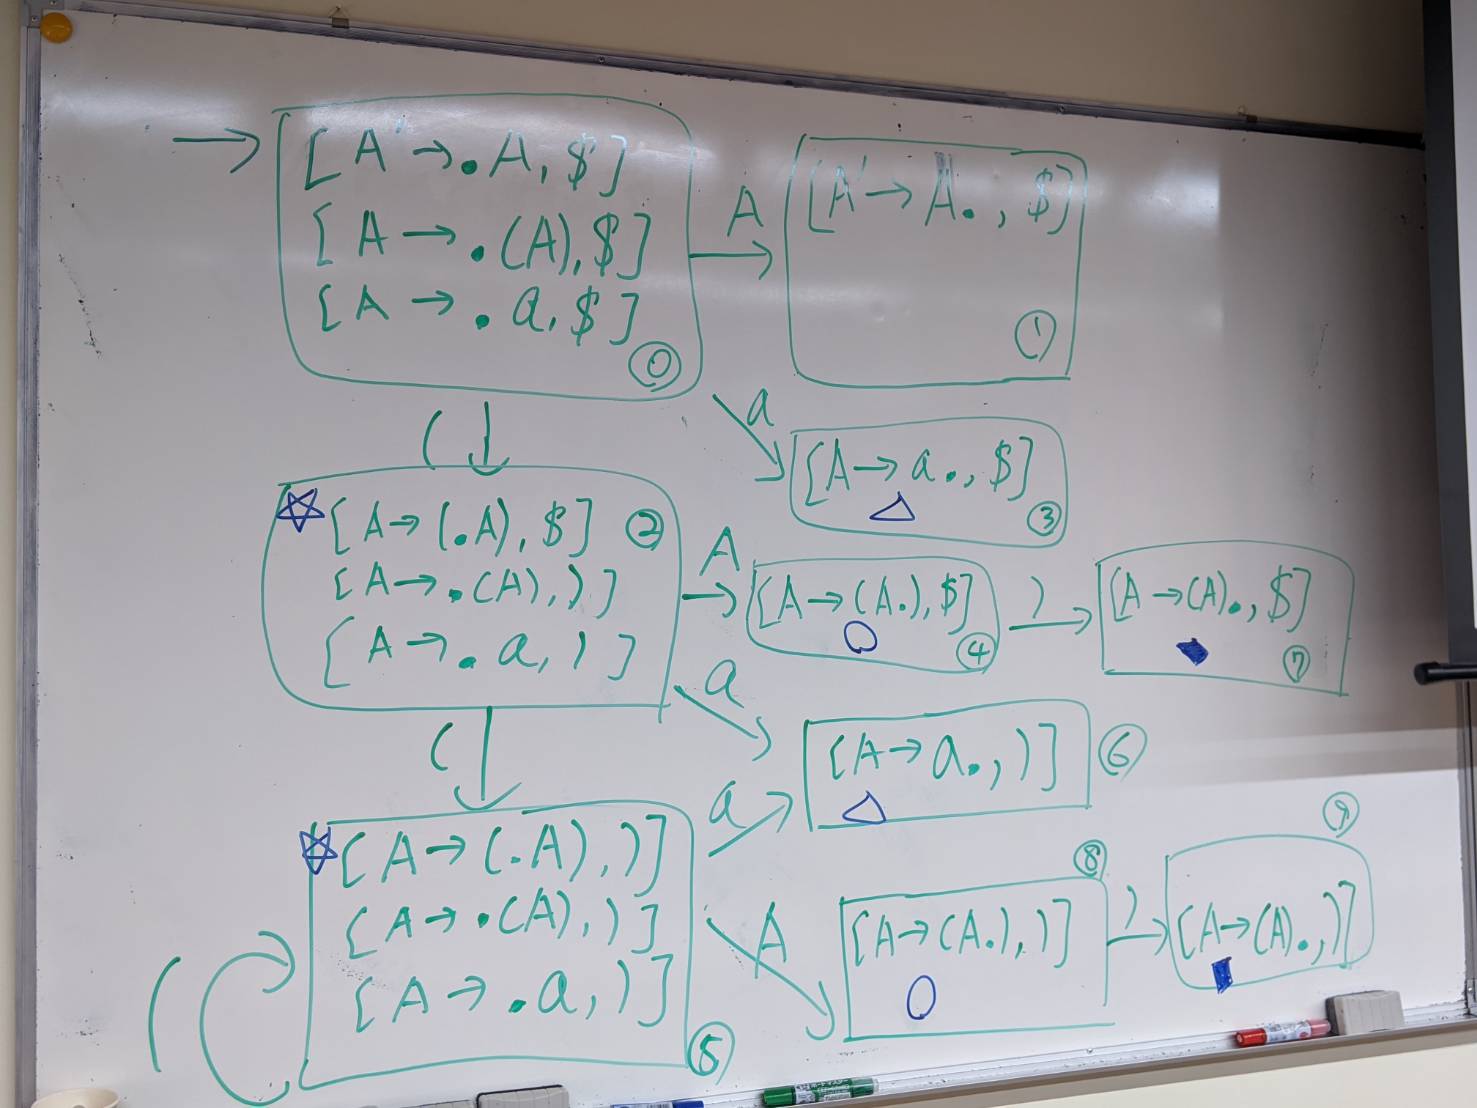 [A' → .A, $]
[A → .(A), $]
[A → .a, $]
0
A
[A' → A., $]
1
a
[A → a., $]
3
(
[A → (.A), $] 2
[A → .(A), )]
[A → .a, )]
A
[A → (A.), $]
4
)
[A → (A)., $]
7
a
[A → a., )] 6
(
a
[A → (.A), )]
[A → .(A), )]
[A → .a, )]
5
(
A
8
[A → (A.), )]
)
9
[A → (A)., )]